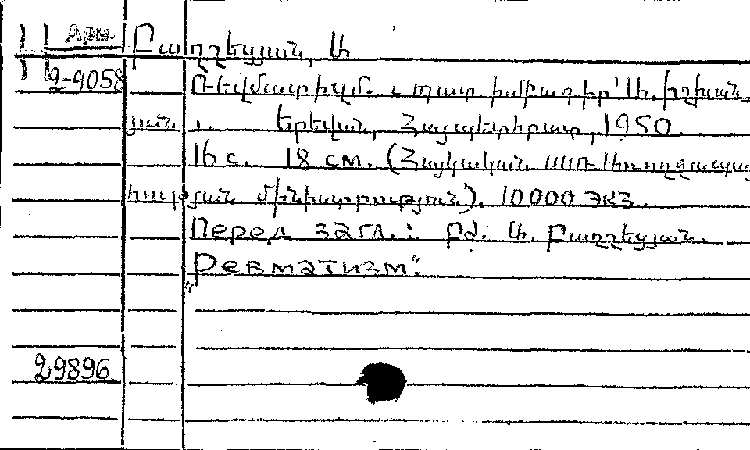 Арм. Բաղդեյան, Ա
2-9058 Ռևմատիզմ. պատ խմբագիր՝ Ա.
յան Երևան, Հայպետհրատ, 1950
16 с. 18 см. (Հայկական ՍՍՌ Առողջապա
հության մինիստրություն). 10000 экз.
Перед загл.: Բժ. Ա. Բաղդեյան.
"Ревматизм".
29896